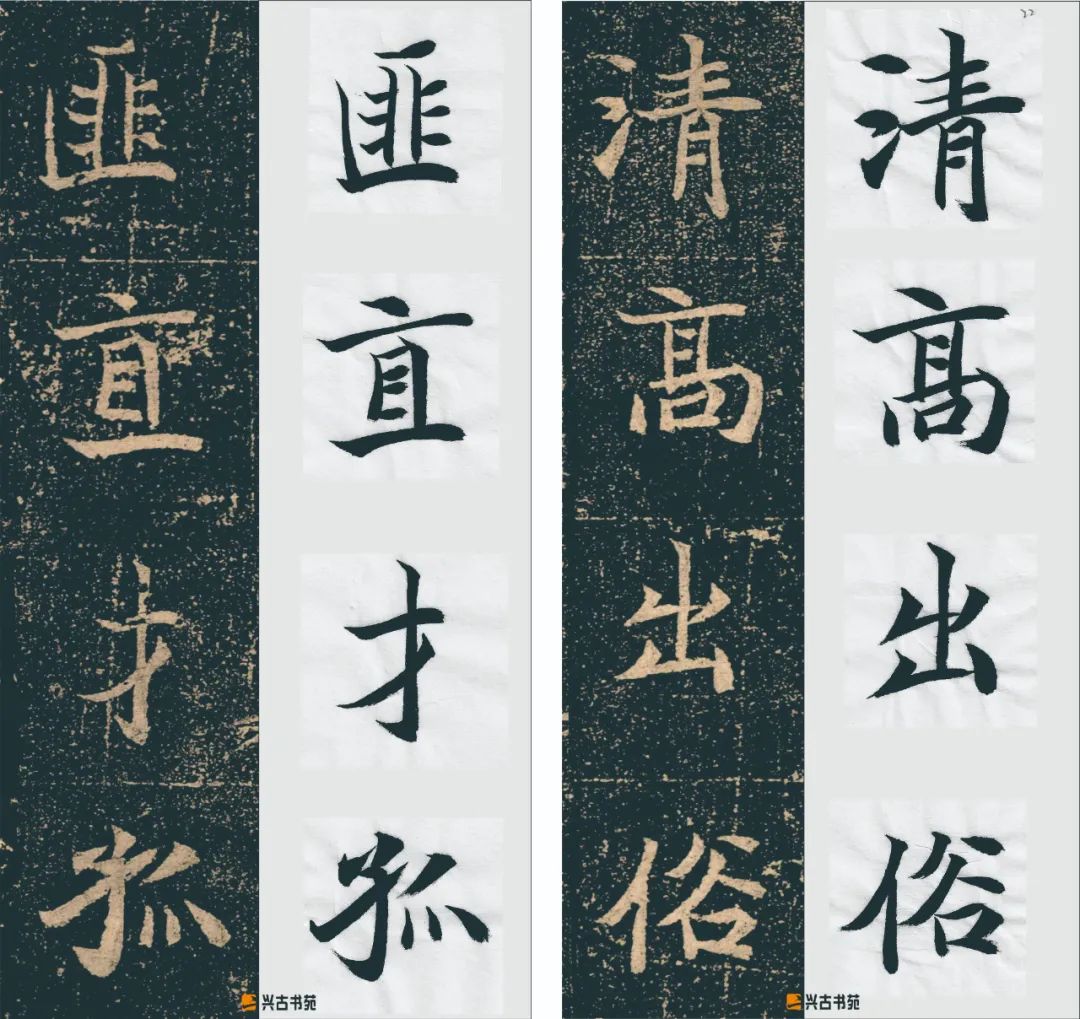 匪直才孤
匪直才孤
兴古书苑
清高出俗
清高出俗
22
兴古书苑